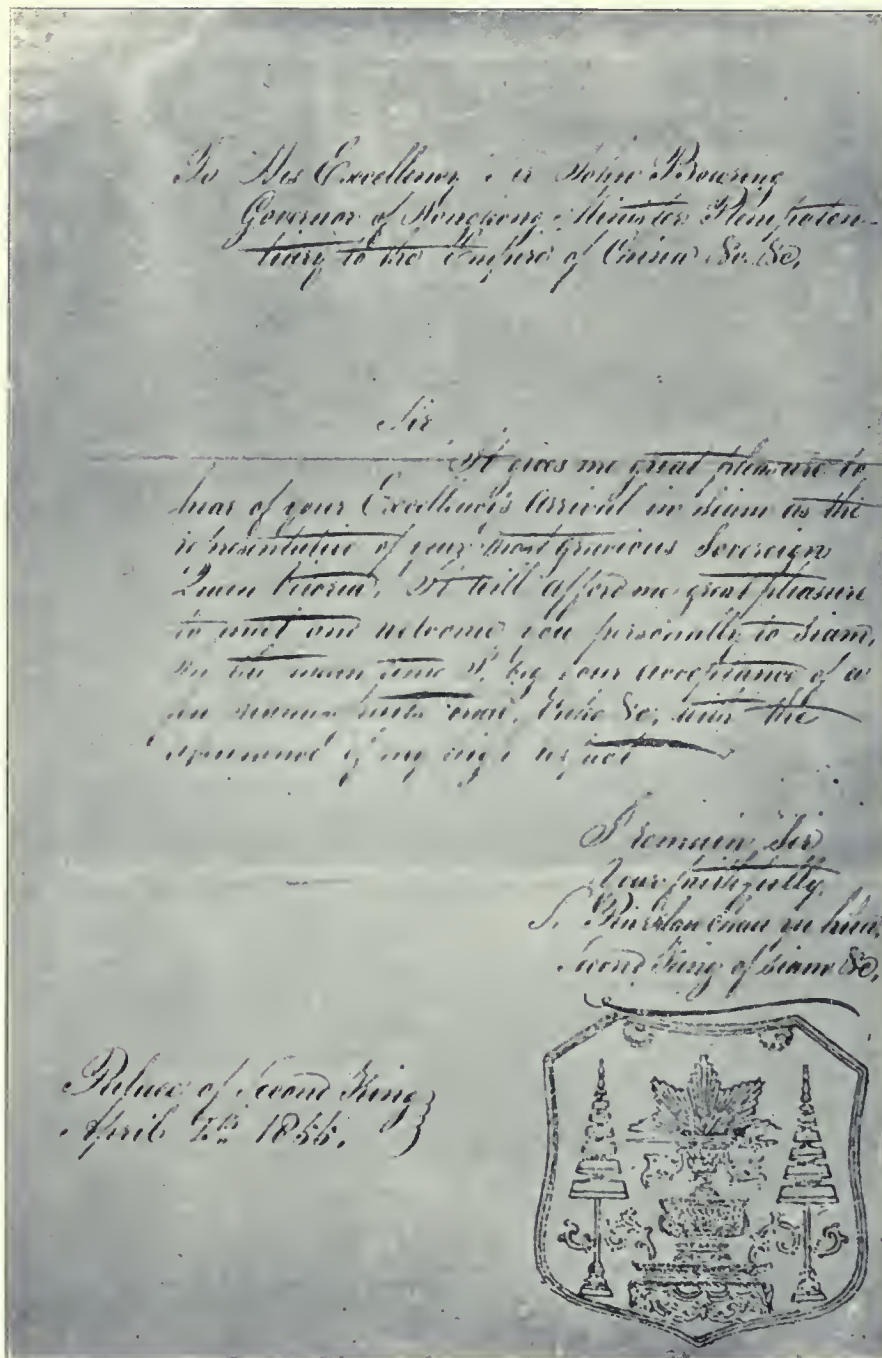 To His Excellency Sir John Bowring
Governor of Hongkong Minister Plenipoten-
tiary to the Empire of China &c. &c,
Sir
It gives me great pleasure to
hear of your Excellency's arrival in Siam as the
representative of your most gracious Sovereign
Queen Victoria, It will afford me great pleasure
to meet and welcome you personally to Siam,
In the mean time I beg your acceptance of a
few cakes &c, with the
of my high respect
I remain Sir
Your faithfully,
S.
Second King of Siam &c,
Palace of Second King
April 1855.